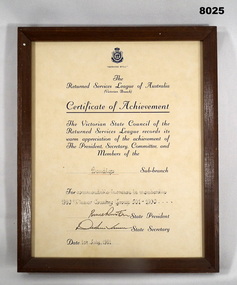 8025
The
Returned Services League of Australia
(Victorian Branch)
Certificate of Achievement
The Victorian State Council of the
Returned Services League records its
warm appreciation of the achievement of
The President, Secretary, Committee, and
Members of the
Sub-branch
For commendable increase in membership
State President
State Secretary
Date 1st July, 1991